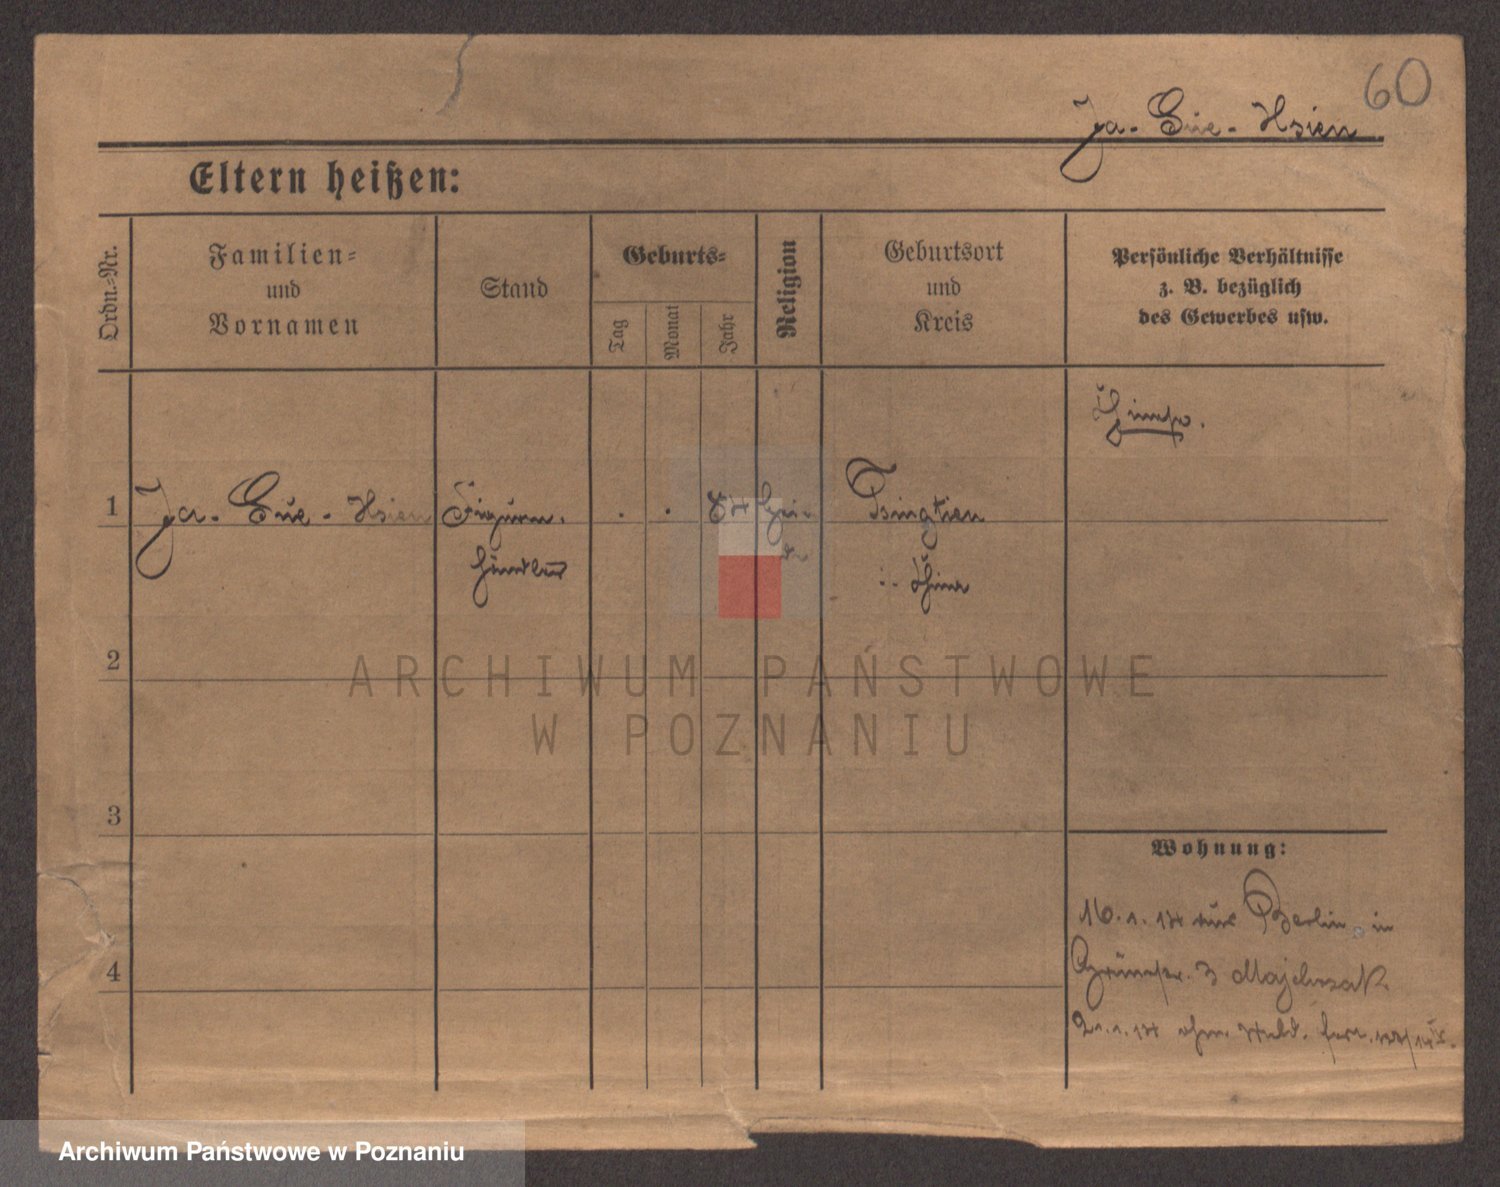 60
Ja-Sue-Hsien
Eltern heißen:
Ordn.-Nr.
Familien-
und
Vornamen
Stand
Geburts-
Tag
Monat
Jahr
Religion
Geburtsort
und
Kreis
Persönliche Verhältnisse
z. B. bezüglich
des Gewerbes usw.
1
Ja-Sue-Hsien
Figuren-
händler
84
Hei-
de
Tsingtien
China
2
3
4
Wohnung:
16.1.14 aus Berlin in
Grünestr. 3 Majchrzak
21.1.14 ohne Meld.
ARCHIWUM PAŃSTWOWE
W POZNANIU
Archiwum Państwowe w Poznaniu